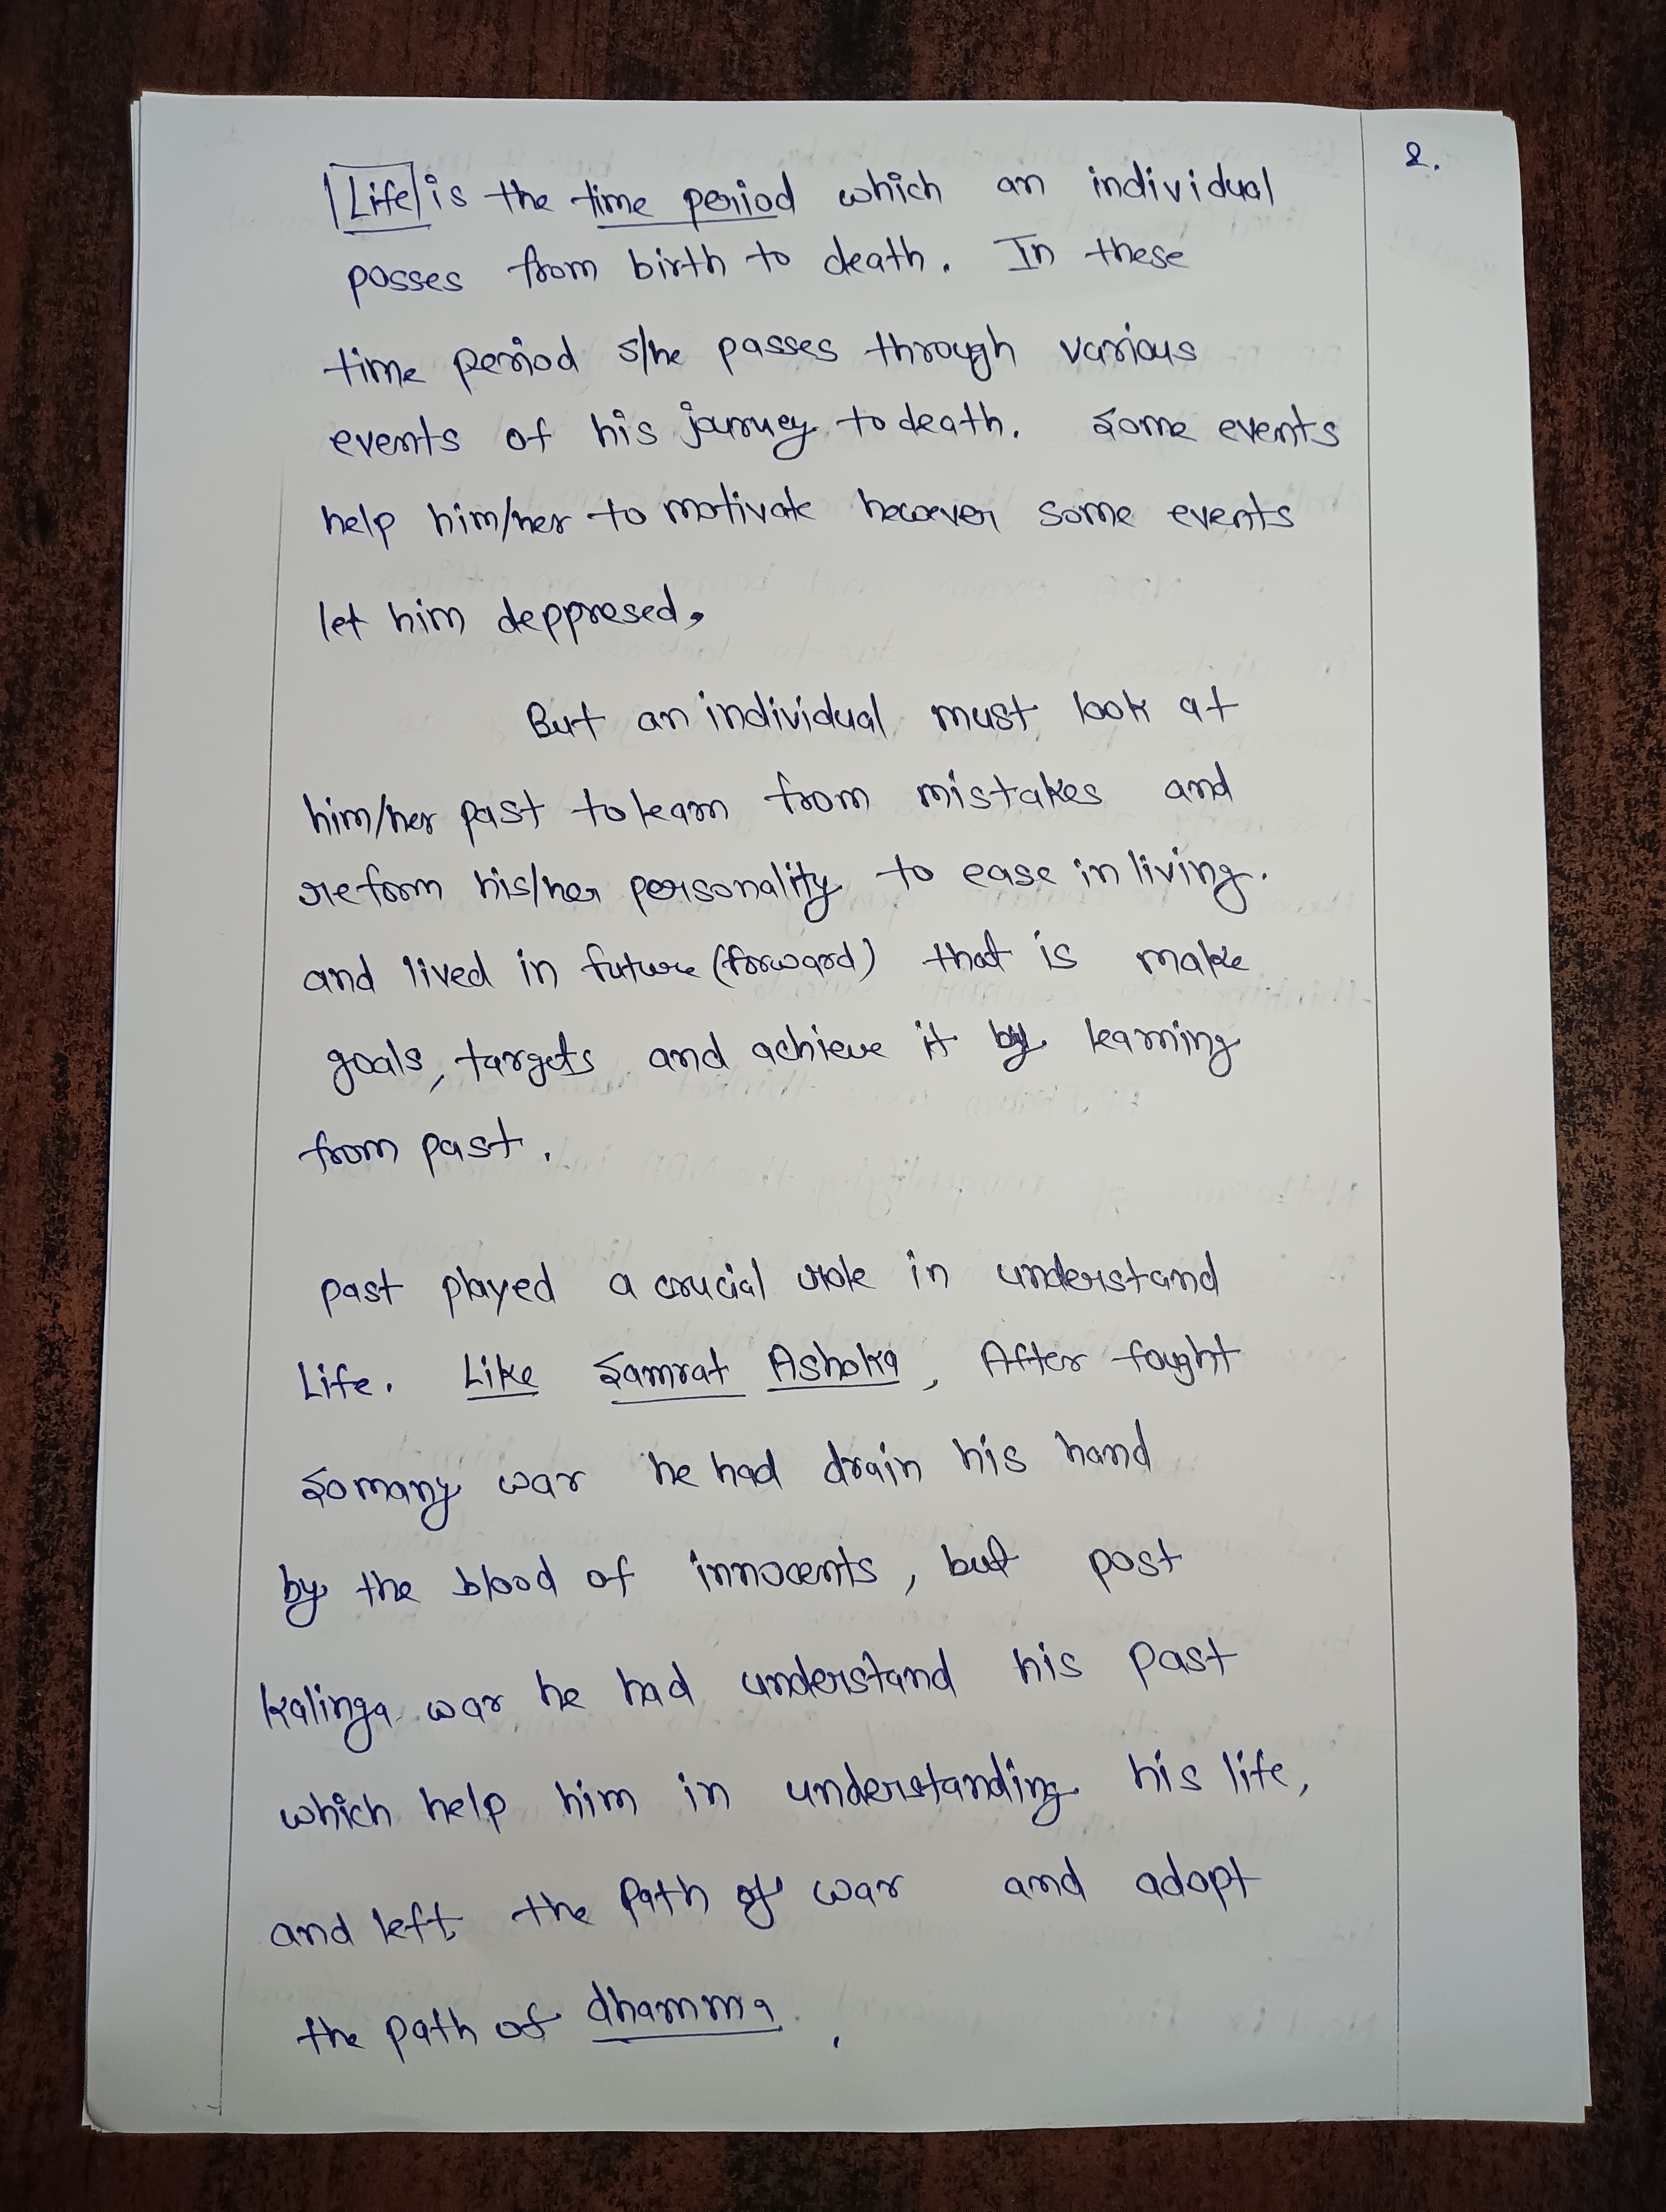 2.
Life is the time period which an individual
passes from birth to death. In these
time period s/he passes through various
events of his jouruey to death. Some events
help him/her to motivate however some events
let him deppresed,
But an individual must look at
him/her past to learn from mistakes and
reform his/her personality to ease in living.
and lived in future (forward) that is make
goals, targets and achieve it by learning
from past.
past played a crucial role in understand
Life. Like Samrat Ashoka, After fought
so many war he had drain his hand
by the blood of innocents, but post
Kalinga war he had understand his past
which help him in understanding his life,
and left the path of war and adopt
the path of dhamma.